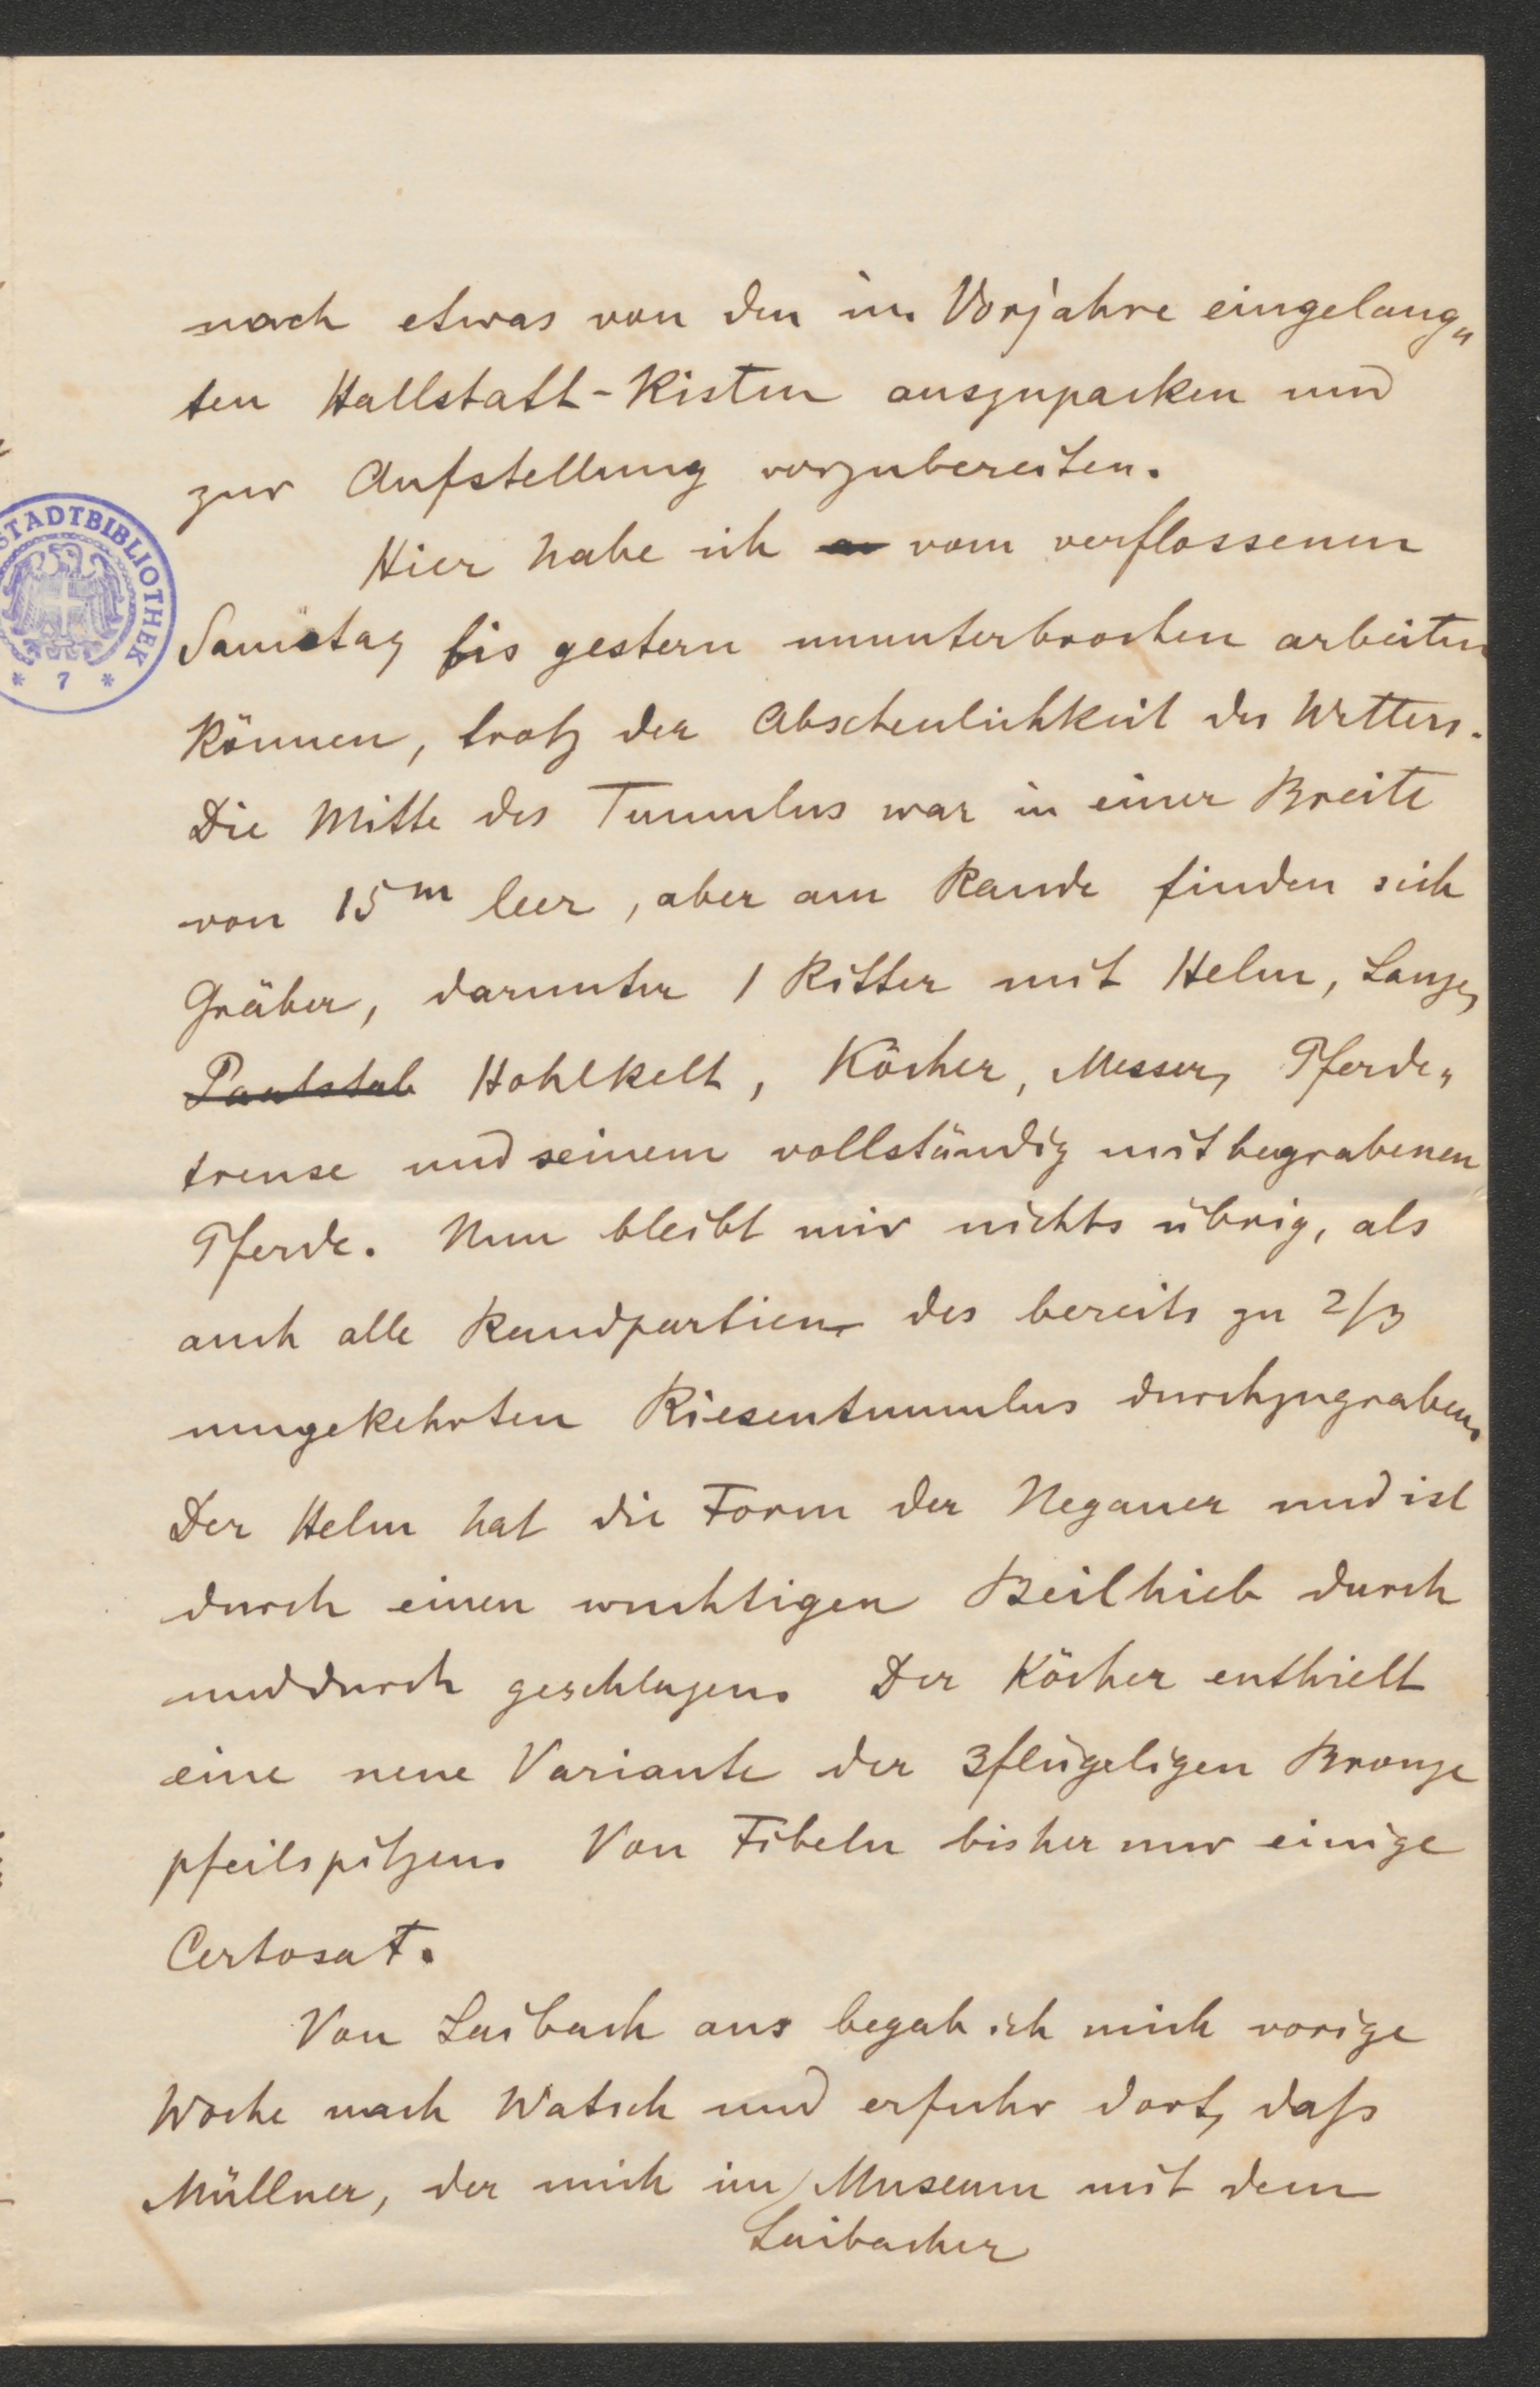 noch etwas von den im Vorjahre eingelang„
ten Hallstatt-Kisten auszupacken und
zur Aufstellung vorzubereiten.
Hier habe ich vom verflossenen
STADTBIBLIOTHEK
* 7 *
Samstag bis gestern ununterbrochen arbeiten
können, trotz der Abscheulichkeit des Wetters.
Die Mitte des Tumulus war in einer Breite
von 15m leer, aber am Rande finden sich
Gräber, darunter 1 Ritter mit Helm, Lanze,
Paalstab Hohlkelt, Köcher, Messer, Pferde„
trense und seinem vollständig mitbegrabenen
Pferde. Nun bleibt mir nichts übrig, als
auch alle Randpartien des bereits zu 2/3
umgekehrten Riesentumulus durchzugraben.
Der Helm hat die Form der Negauer und ist
durch einen wuchtigen Beilhieb durch
und durch geschlagen. Der Köcher enthielt
eine neue Variante der 3flügeligen Bronze
pfeilspitzen. Von Fibeln bisher nur einige
Certosa f.
Von Laibach aus begab ich mich vorige
Woche nach Watsch und erfuhr dort, daß
Müllner, der mich im Museum mit dem
Laibacher